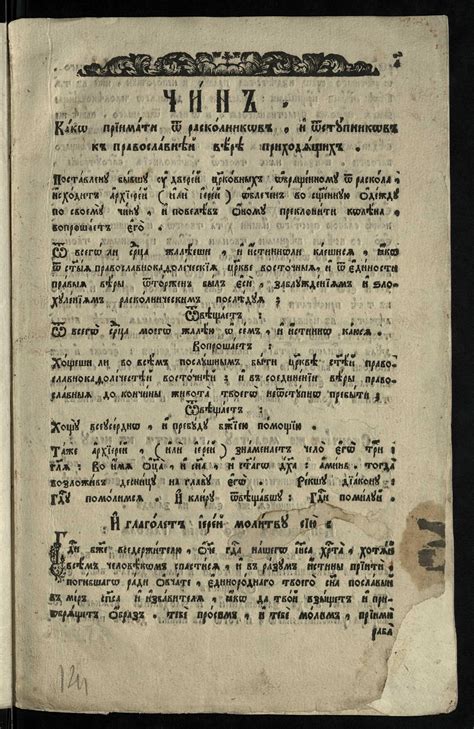 ЧИ́НЪ.
Ка́кѡ прїима́ти ѿ раско́лникѡвъ, и҆ ѿстꙋ́пникѡвъ
къ правосла́внѣй вѣ́рѣ приходѧ́щихъ.
Поста́вленꙋ бы́вшꙋ ᲂу҆ две́рей цр҃ко́вныхъ ѡ҆браще́нномꙋ ѿ раско́ла
и҆схо́дитъ а҆рхїере́й (и҆лѝ і҆ере́й) ѡ҆блече́нъ во сщ҃е́ннꙋю ѻ҆де́ждꙋ
по своемꙋ̀ чи́нꙋ, и҆ повелѣ́въ ѻ҆́номꙋ преклони́ти кѡлѣ́на,
вопроша́етъ є҆го̀.
Ѿ всегѡ́ ли срⷣца жалѣ́еши, и҆ и҆́стиннѡ ка́ешисѧ, ꙗ҆́кѡ
ѿ ст҃ы́ѧ правосла́внокаѳоли́ческїѧ цр҃кве восто́чныѧ, и҆ ѿ є҆ди́ности
пра́выѧ вѣ́ры ѿто́рженъ бы́лъ є҆сѝ, заблꙋжде́нїѧмъ и҆ ѕло-
хꙋле́нїѧмъ раско́лническимъ послѣ́дꙋѧ;
Ѿвѣща́етъ:
Ѿ всегѡ̀ срⷣца моегѡ̀ жалѣ́ю ѡ҆ се́мъ, и҆ и҆́стиннѡ ка́юсѧ.
Вопроша́етъ:
Хо́щеши ли во всѣ́мъ послꙋ́шнымъ бы́ти цр҃квѣ ст҃ѣ́й право-
сла́внокаѳоли́честѣй восто́чнѣй; и҆ въ соедине́нїи вѣ́ры право-
сла́вныѧ до кончи́ны живота̀ твоегѡ̀ неѿстꙋ́пнѡ пребы́ти;
Ѿвѣща́етъ:
Хощꙋ̀ всеꙋсе́рднѡ, и҆ пребꙋ́дꙋ бж҃їею по́мощїю.
Та́же а҆рхїере́й, (и҆лѝ і҆ере́й) зна́менаетъ чело̀ є҆гѡ̀ три́-
глѧ: Во и҆́мѧ ѻ҆ц҃а̀, и҆ сн҃а, и҆ ст҃а́гѡ дх҃а: а҆ми́нь. тогда̀
возложи́въ десни́цꙋ на главꙋ̀ є҆гѡ̀. Ре́кшꙋ дїа́конꙋ:
Гдⷭ҇ꙋ помо́лимсѧ. И҆ кли́рꙋ ѿвѣща́вшꙋ: Гдⷭ҇и поми́лꙋй.
И҆ глаго́летъ і҆ере́й моли́твꙋ сїю̀
Гдⷭ҇и бж҃е вседержи́телю, ѻ҆́ч҃е гдⷭ҇а на́шегѡ і҆и҃са хрⷭ҇та̀, хотѧ́й
всѣ́мъ человѣ́кѡмъ спасти́сѧ, и҆ въ ра́зꙋмъ и҆́стины прїитѝ
поги́бшагѡ ра́ди ѻ҆вча́те, є҆диноро́днаго твоего̀ сн҃а посла́вый
въ мі́ръ сп҃са и҆ и҆зба́вителѧ, ꙗ҆́кѡ да то́й взы́щетъ и҆ прї-
ѡбрѧ́щитъ ѻ҆́бразъ. тебѣ̀ про́симъ, и҆ тебѣ̀ мо́лимъ, прїимѝ
раба̀